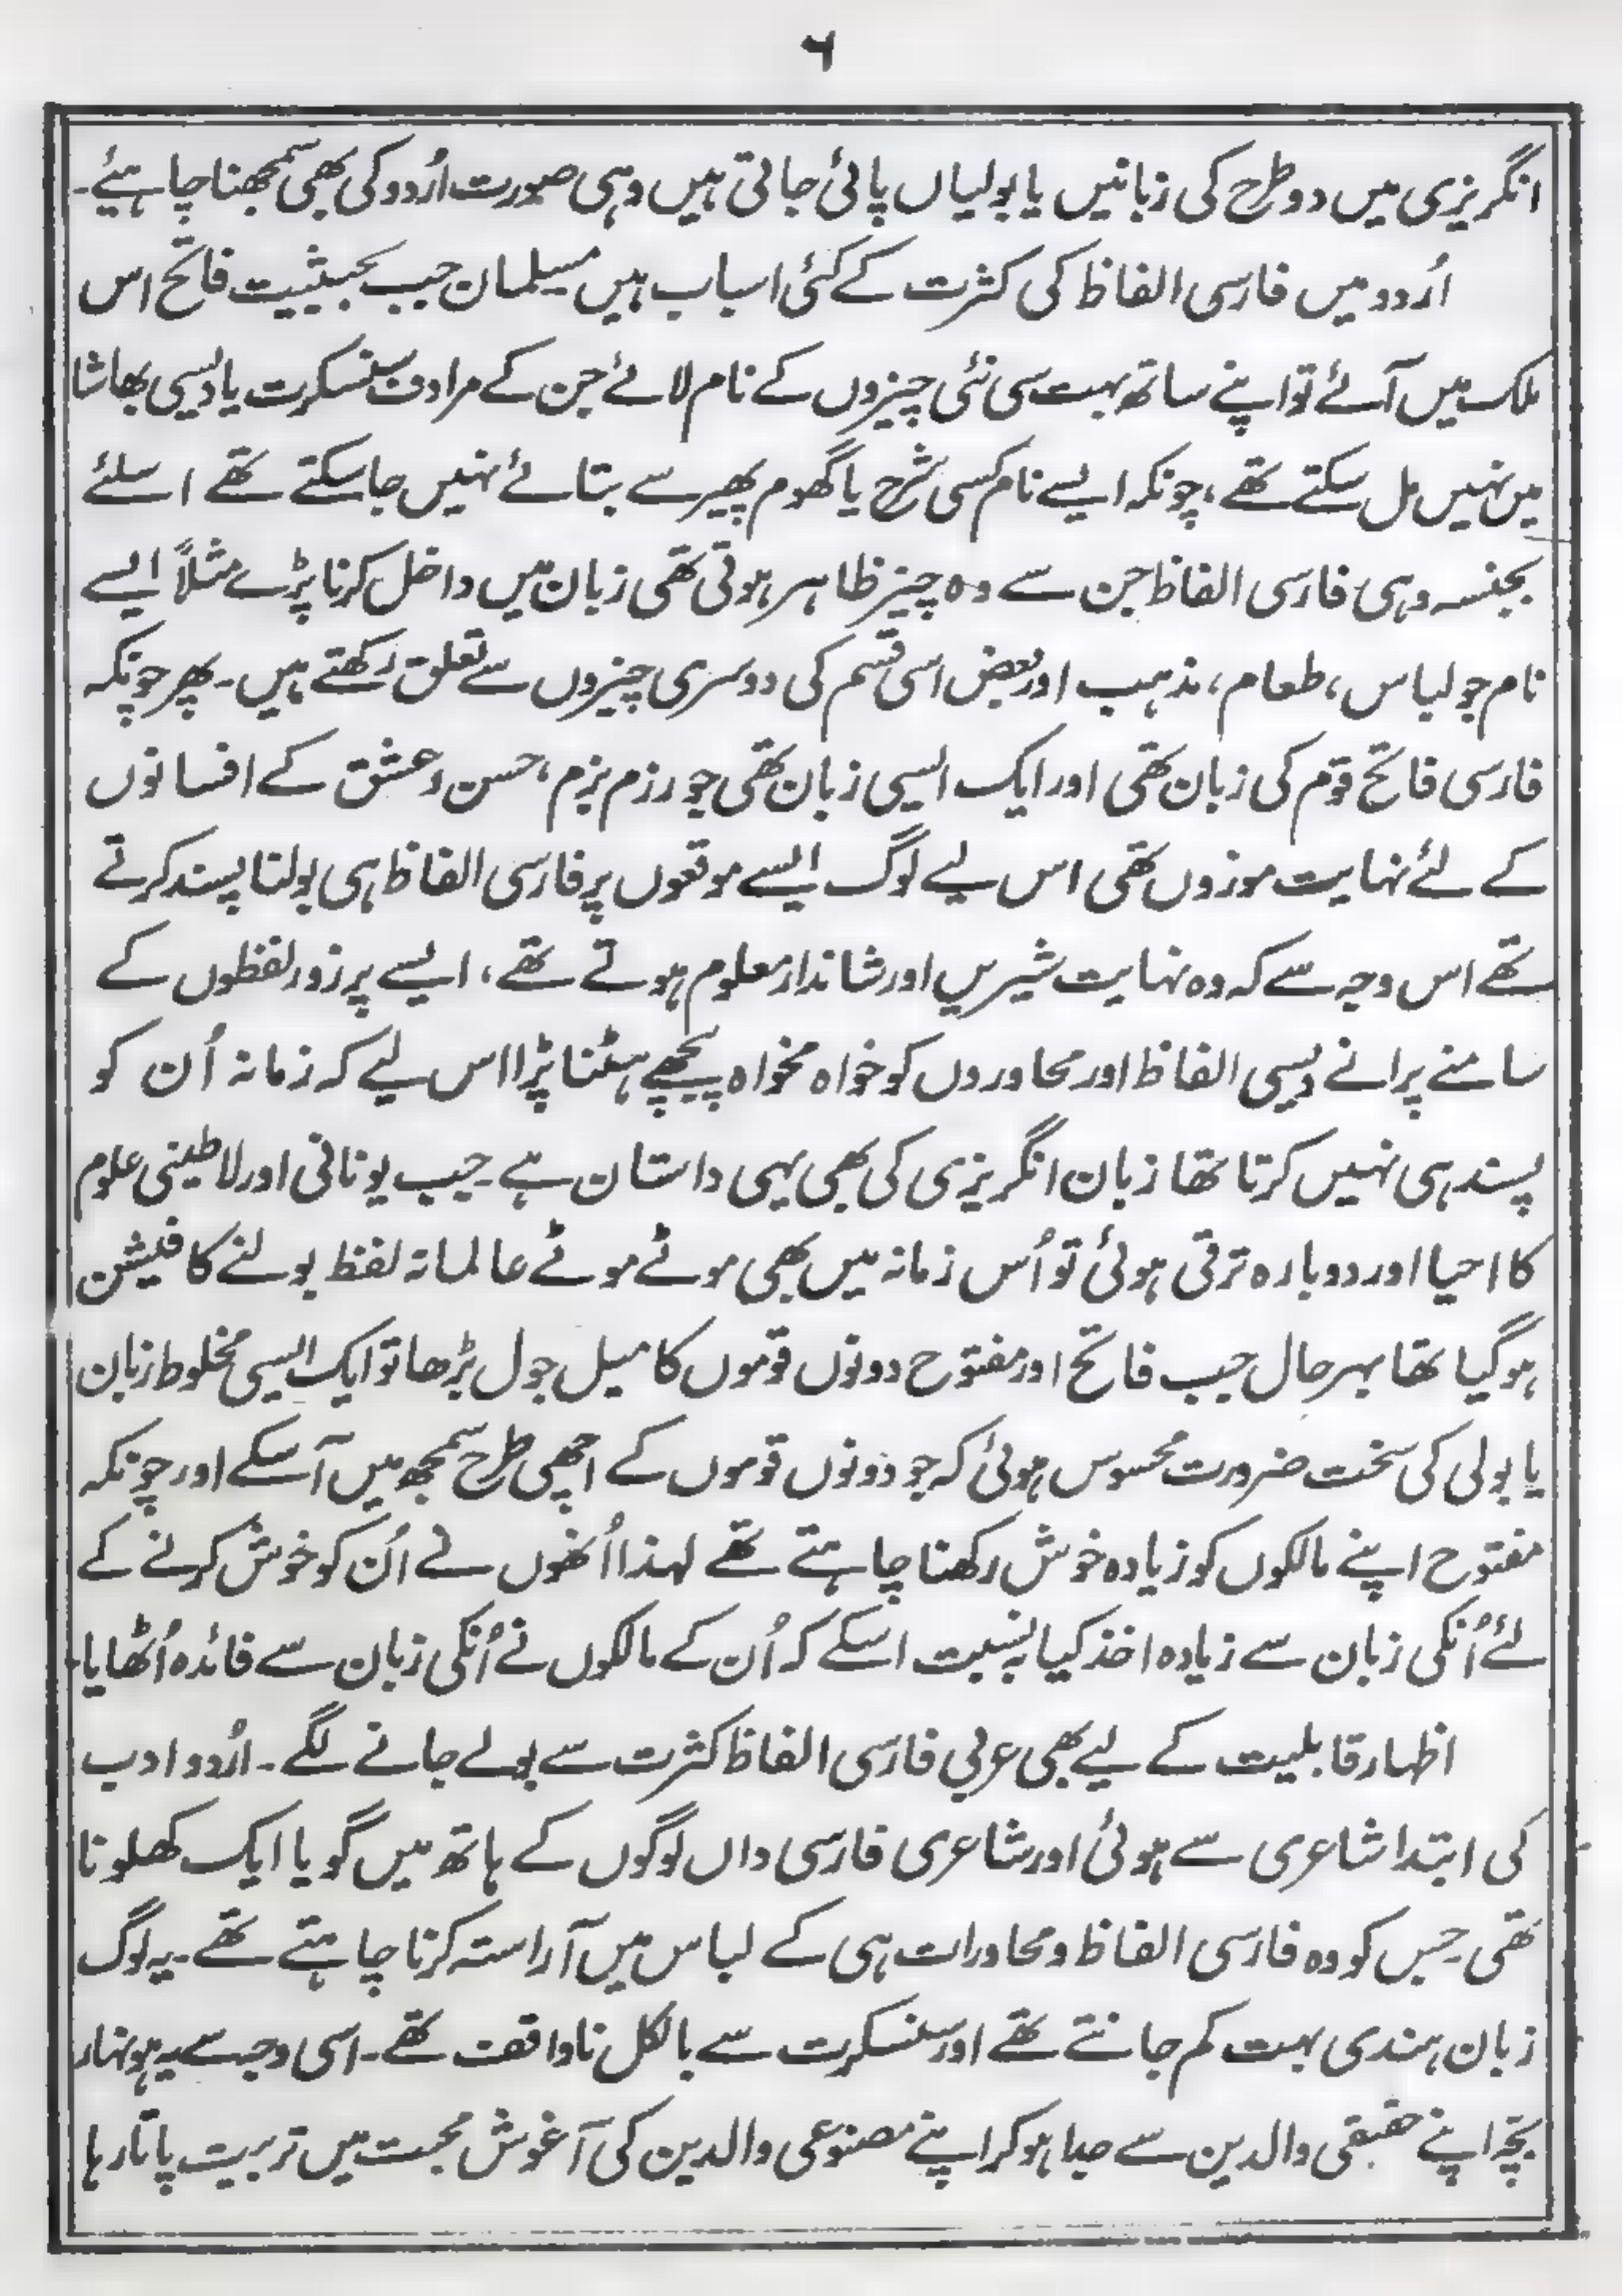 ۶
انگریزی میں دو طرح کی زبانیں یا بولیاں پائی جاتی ہیں وہی صورت اُردو کی بھی سمجھنا چاہیئے۔
اُردو میں فارسی الفاظ کی کثرت کے کئی اسباب ہیں مسلمان جب بحیثیت فاتح اس
ملک میں آئے تو اپنے ساتھ بہت سی نئی چیزوں کے نام لائے جن کے مرادف سنسکرت یا دیسی بھاشا
میں نہیں مل سکتے تھے، چونکہ ایسے نام کسی شرح یا گھوم پھیر سے بتائے نہیں جا سکتے تھے اسلئے
بجنسہ وہی فارسی الفاظ جن سے وہ چیز ظاہر ہوتی تھی زبان میں داخل کرنا پڑے مثلاً ایسے
نام جو لباس، طعام، مذہب اور بعض اسی قسم کی دوسری چیزوں سے تعلق رکھتے ہیں۔ پھر چونکہ
فارسی فاتح قوم کی زبان تھی اور ایک ایسی زبان تھی جو رزم بزم، حسن و عشق کے افسانوں
کے لئے نہایت موزوں تھی اس لیے لوگ ایسے موقعوں پر فارسی الفاظ ہی بولنا پسند کرتے
تھے اس وجہ سے کہ وہ نہایت شیریں اور شاندار معلوم ہوتے تھے، ایسے پر زور لفظوں کے
سامنے پرانے دیسی الفاظ اور محاوروں کو خواہ مخواہ پیچھے ہٹنا پڑا اس لیے کہ زمانہ اُن کو
پسند ہی نہیں کرتا تھا زبان انگریزی کی بھی یہی داستان ہے۔ جب یونانی اور لاطینی علوم
کا احیا اور دوبارہ ترقی ہوئی تو اُس زمانہ میں بھی موٹے موٹے عالمانہ لفظ بولنے کا فیشن
ہو گیا تھا بہر حال جب فاتح اور مفتوح دونوں قوموں کا میل جول بڑھا تو ایک ایسی مخلوط زبان
یا بولی کی سخت ضرورت محسوس ہوئی کہ جو دونوں قوموں کے اچھی طرح سمجھ میں آ سکے اور چونکہ
مفتوح اپنے مالکوں کو زیادہ خوش رکھنا چاہتے تھے لہذا اُنھوں نے اُن کو خوش کرنے کے
لئے اُنکی زبان سے زیادہ اخذ کیا بہ نسبت اسکے کہ اُن کے مالکوں نے اُنکی زبان سے فائدہ اُٹھایا۔
اظہار قابلیت کے لیے بھی عربی فارسی الفاظ کثرت سے بولے جانے لگے۔ اُردو ادب
کی ابتدا شاعری سے ہوئی اور شاعری فارسی داں لوگوں کے ہاتھ میں گویا ایک کھلونا
تھی۔ جس کو وہ فارسی الفاظ و محاورات ہی کے لباس میں آراستہ کرنا چاہتے تھے۔ یہ لوگ
زبان ہندی بہت کم جانتے تھے اور سنسکرت سے بالکل ناواقف تھے۔ اسی وجہ سے یہ ہونہار
بچّہ اپنے حقیقی والدین سے جدا ہو کر اپنے مصنوعی والدین کی آغوش محبت میں تربیت پاتا رہا